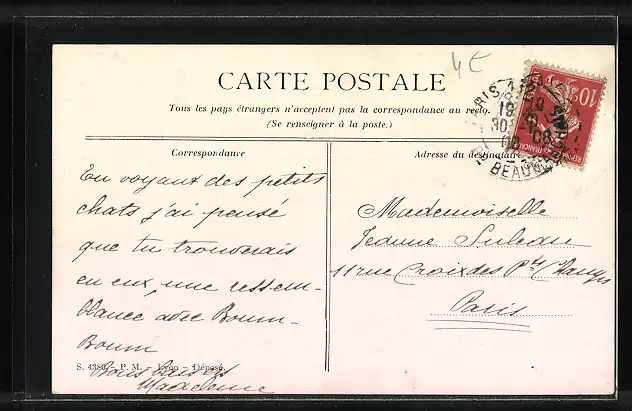 4€
CARTE POSTALE
Tous les pays étrangers n'acceptent pas la correspondance au recto.
(Se renseigner à la poste.)
Correspondance
En voyant des petits
chats j'ai pensé
que tu trouverais
en eux, une ressem-
blance avec Boum-
Boum
Bons baisers
Madeleine
S. 4380 - P. M. - Lyon - Déposé.
Adresse du destinataire
Mademoiselle
Jeanne
11 rue Croix des Pts Champs
Paris
10